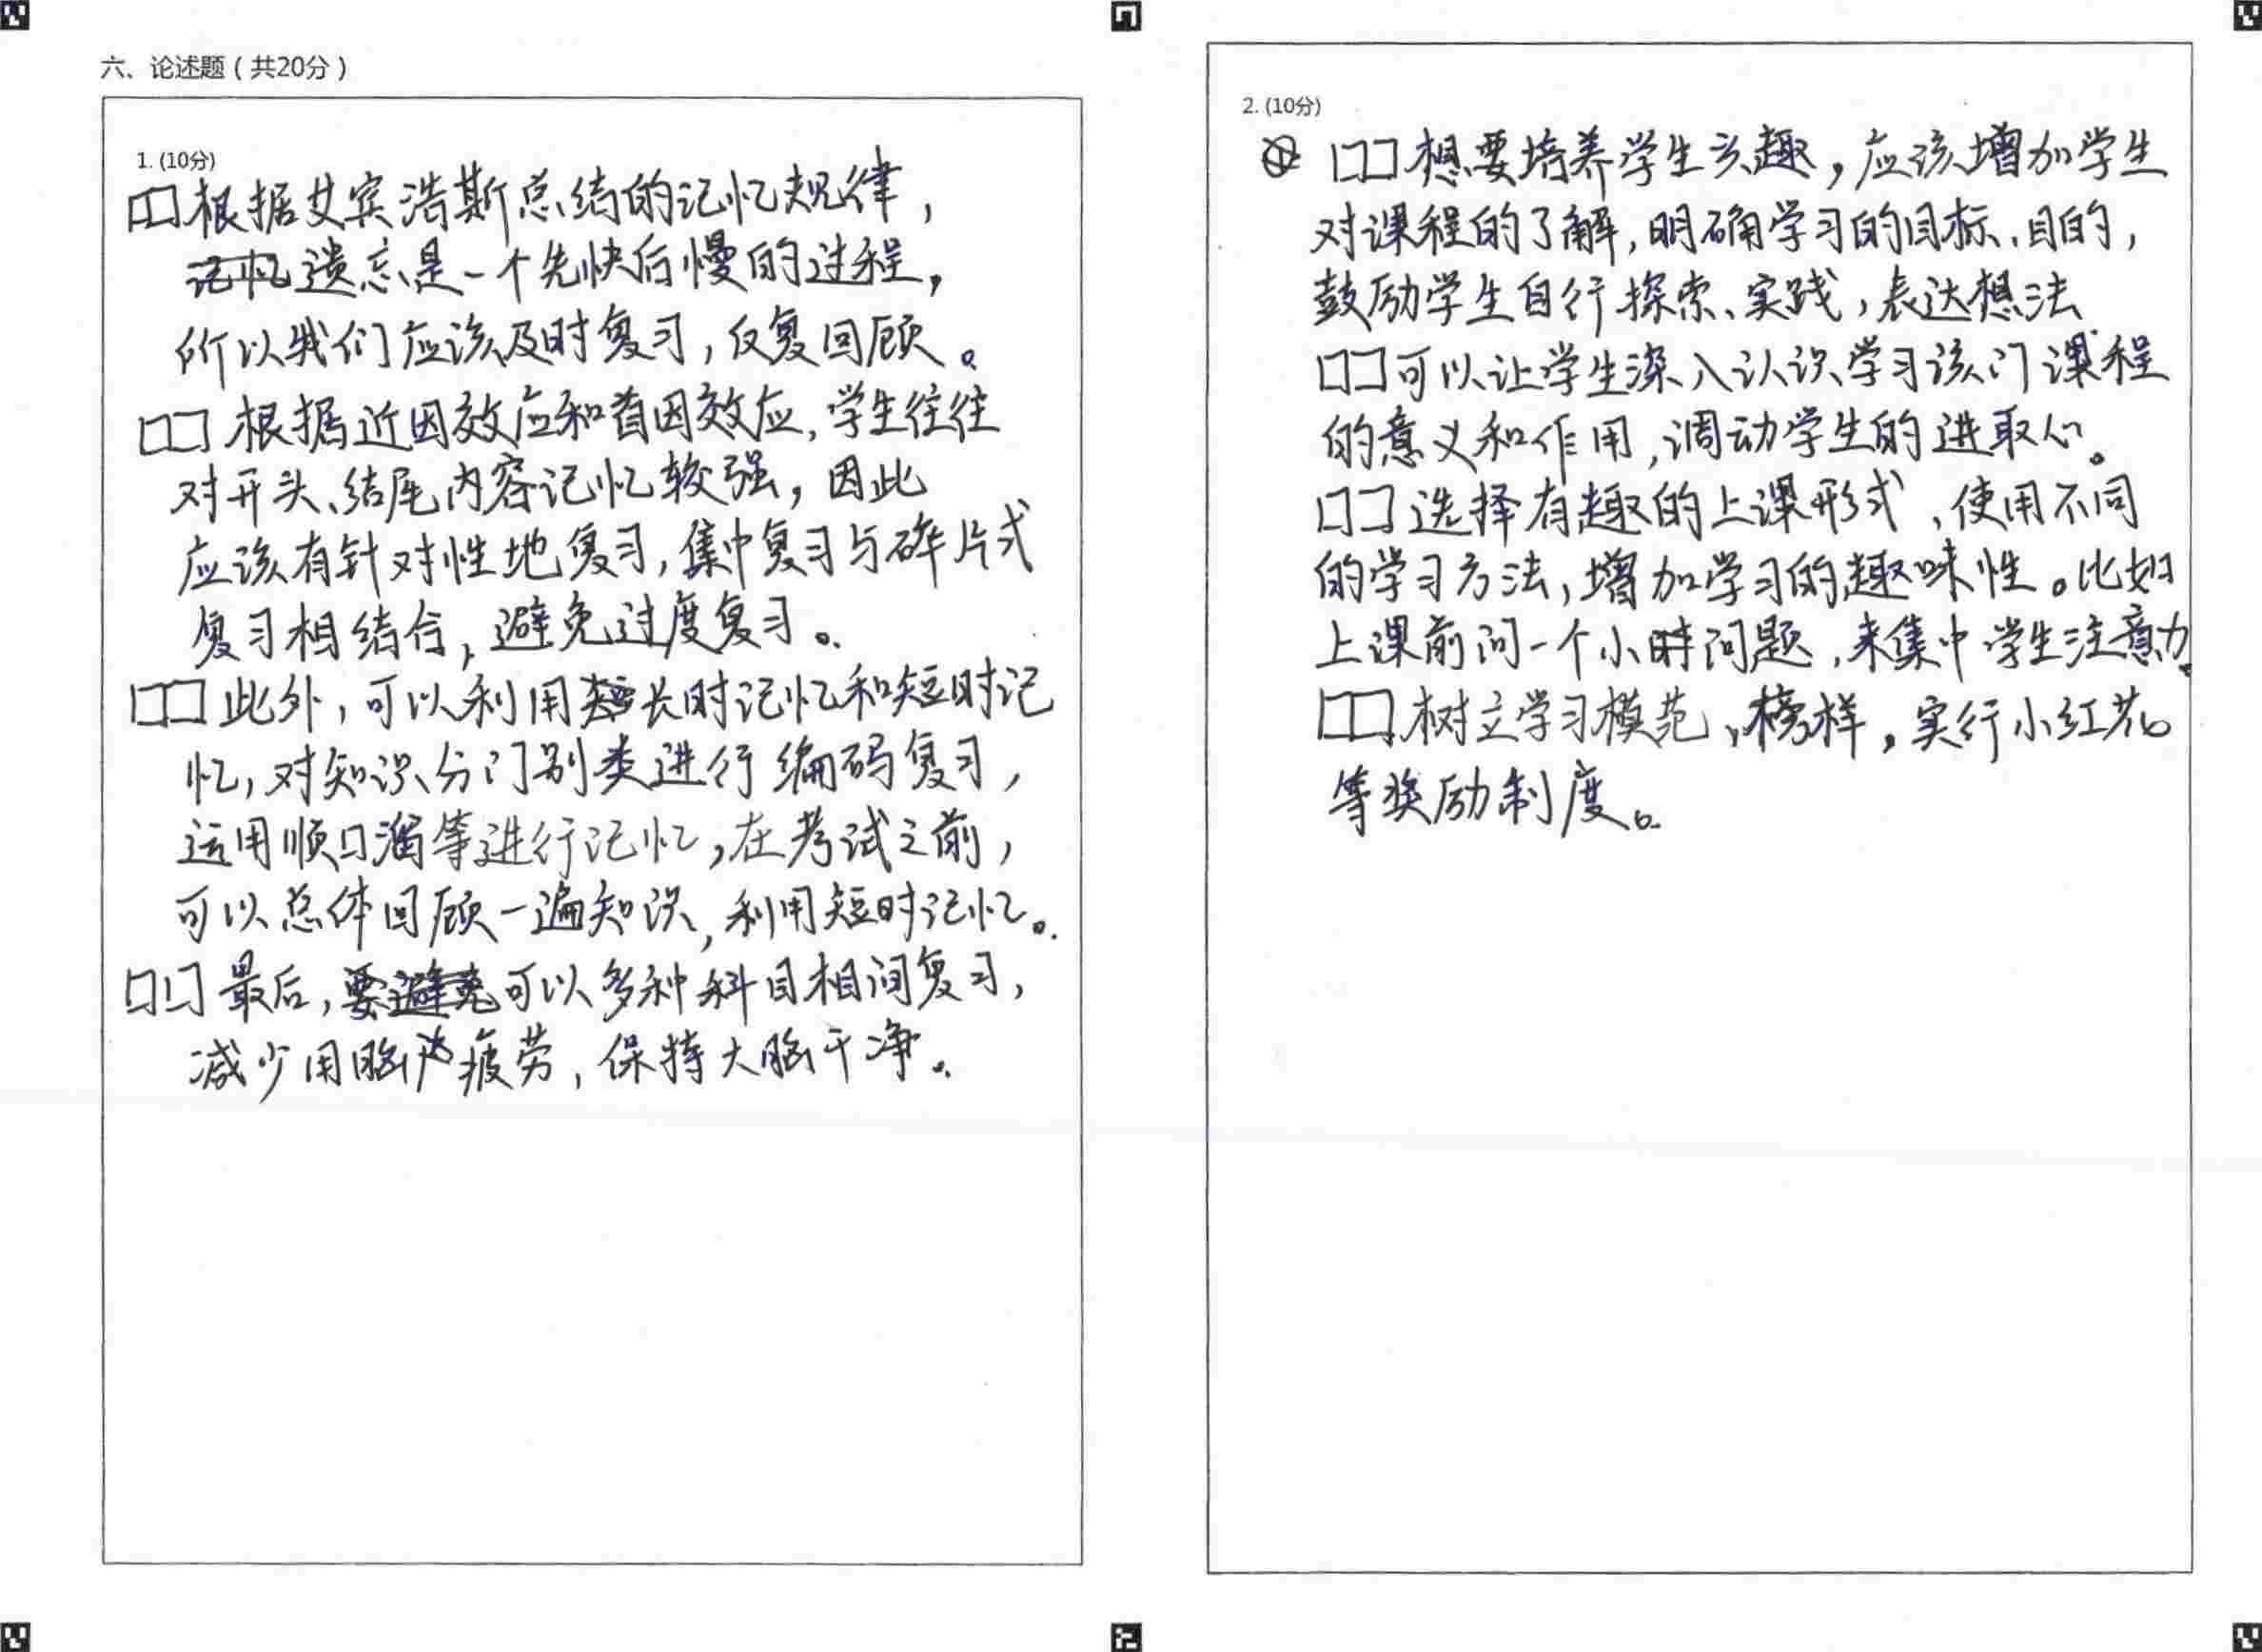 六、论述题（共20分）
1. (10分)
□□根据艾宾浩斯总结的记忆规律，
遗忘是一个先快后慢的过程，
所以我们应该及时复习，反复回顾。
□□根据近因效应和首因效应，学生往往
对开头、结尾内容记忆较强，因此
应该有针对性地复习，集中复习与碎片式
复习相结合，避免过度复习。
□□此外，可以利用长时记忆和短时记
忆，对知识分门别类进行编码复习，
运用顺口溜等进行记忆，在考试之前，
可以总体回顾一遍知识，利用短时记忆。
□□最后，可以多种科目相间复习，
减少用脑疲劳，保持大脑干净。
2. (10分)
□□想要培养学生兴趣，应该增加学生
对课程的了解，明确学习的目标、目的，
鼓励学生自行探索、实践，表达想法
□□可以让学生深入认识学习该门课程
的意义和作用，调动学生的进取心。
□□选择有趣的上课形式，使用不同
的学习方法，增加学习的趣味性。比如
上课前问一个小问题，来集中学生注意力。
□□树立学习模范、榜样，实行小红花
等奖励制度。